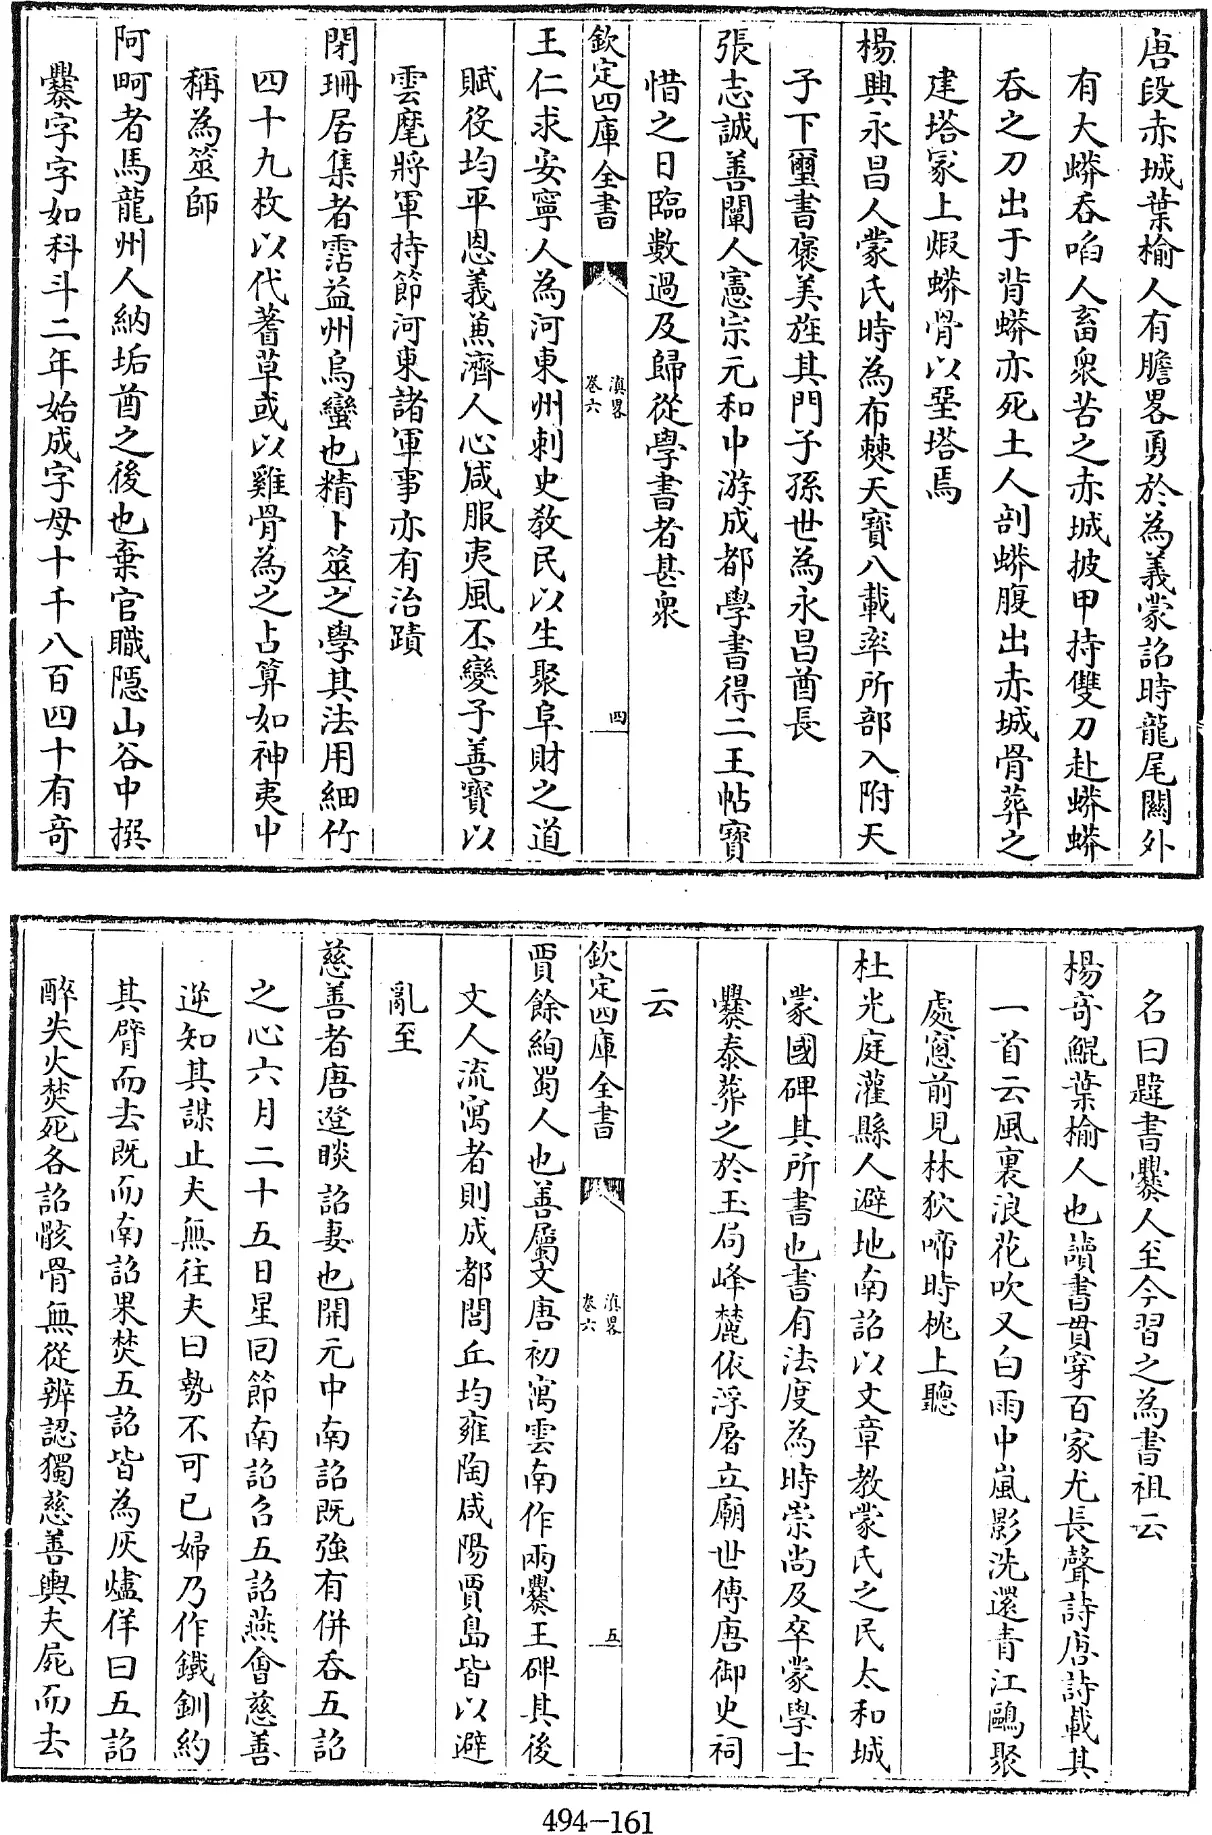 唐段赤城葉榆人有膽畧勇於為義蒙詔時龍尾關外
有大蟒吞啗人畜衆苦之赤城披甲持雙刀赴蟒蟒
吞之刀出于背蟒亦死土人剖蟒腹出赤城骨葬之
建塔冡上煆蟒骨以堊塔焉
楊興永昌人蒙氏時為布㷂天寶八載率所部入附天
子下璽書褒美旌其門子孫世為永昌酋長
張志誠善闡人憲宗元和中游成都學書得二王帖寳
惜之日臨數過及歸從學書者甚衆
欽定四庫全書
滇畧
卷六
四
王仁求安寧人為河東州刺史教民以生聚阜財之道
賦役均平恩義兼濟人心咸服夷風丕變子善寶以
雲麾將軍持節河東諸軍事亦有治蹟
閉珊居集者霑益州烏蠻也精卜筮之學其法用細竹
四十九枚以代蓍草或以雞骨為之占算如神夷中
稱為筮師
阿䎙者馬龍州人納垢酋之後也棄官職隠山谷中撰
爨字字如科斗二年始成字母十千八百四十有奇
名曰韙書爨人至今習之為書祖云
楊奇鯤葉榆人也讀書貫穿百家尤長聲詩唐詩載其
一首云風裏浪花吹又白雨中嵐影洗還青江鷗聚
處窓前見林狖啼時枕上聽
杜光庭灌縣人避地南詔以文章教蒙氏之民太和城
蒙國碑其所書也書有法度為時崇尚及卒蒙學士
爨泰葬之於玉局峰麓依浮屠立廟世傳唐御史祠
云
欽定四庫全書
滇畧
卷六
五
賈餘絢蜀人也善屬文唐初寓雲南作兩爨王碑其後
文人流寓者則成都閭丘均雍陶咸陽賈島皆以避
亂至
慈善者唐邆睒詔妻也開元中南詔既強有併吞五詔
之心六月二十五日星回節南詔召五詔燕會慈善
逆知其謀止夫無往夫曰勢不可已婦乃作鐵釧約
其臂而去既而南詔果焚五詔皆為灰燼佯曰五詔
醉失火焚死各詔骸骨無從辨認獨慈善輿夫屍而去
494-161